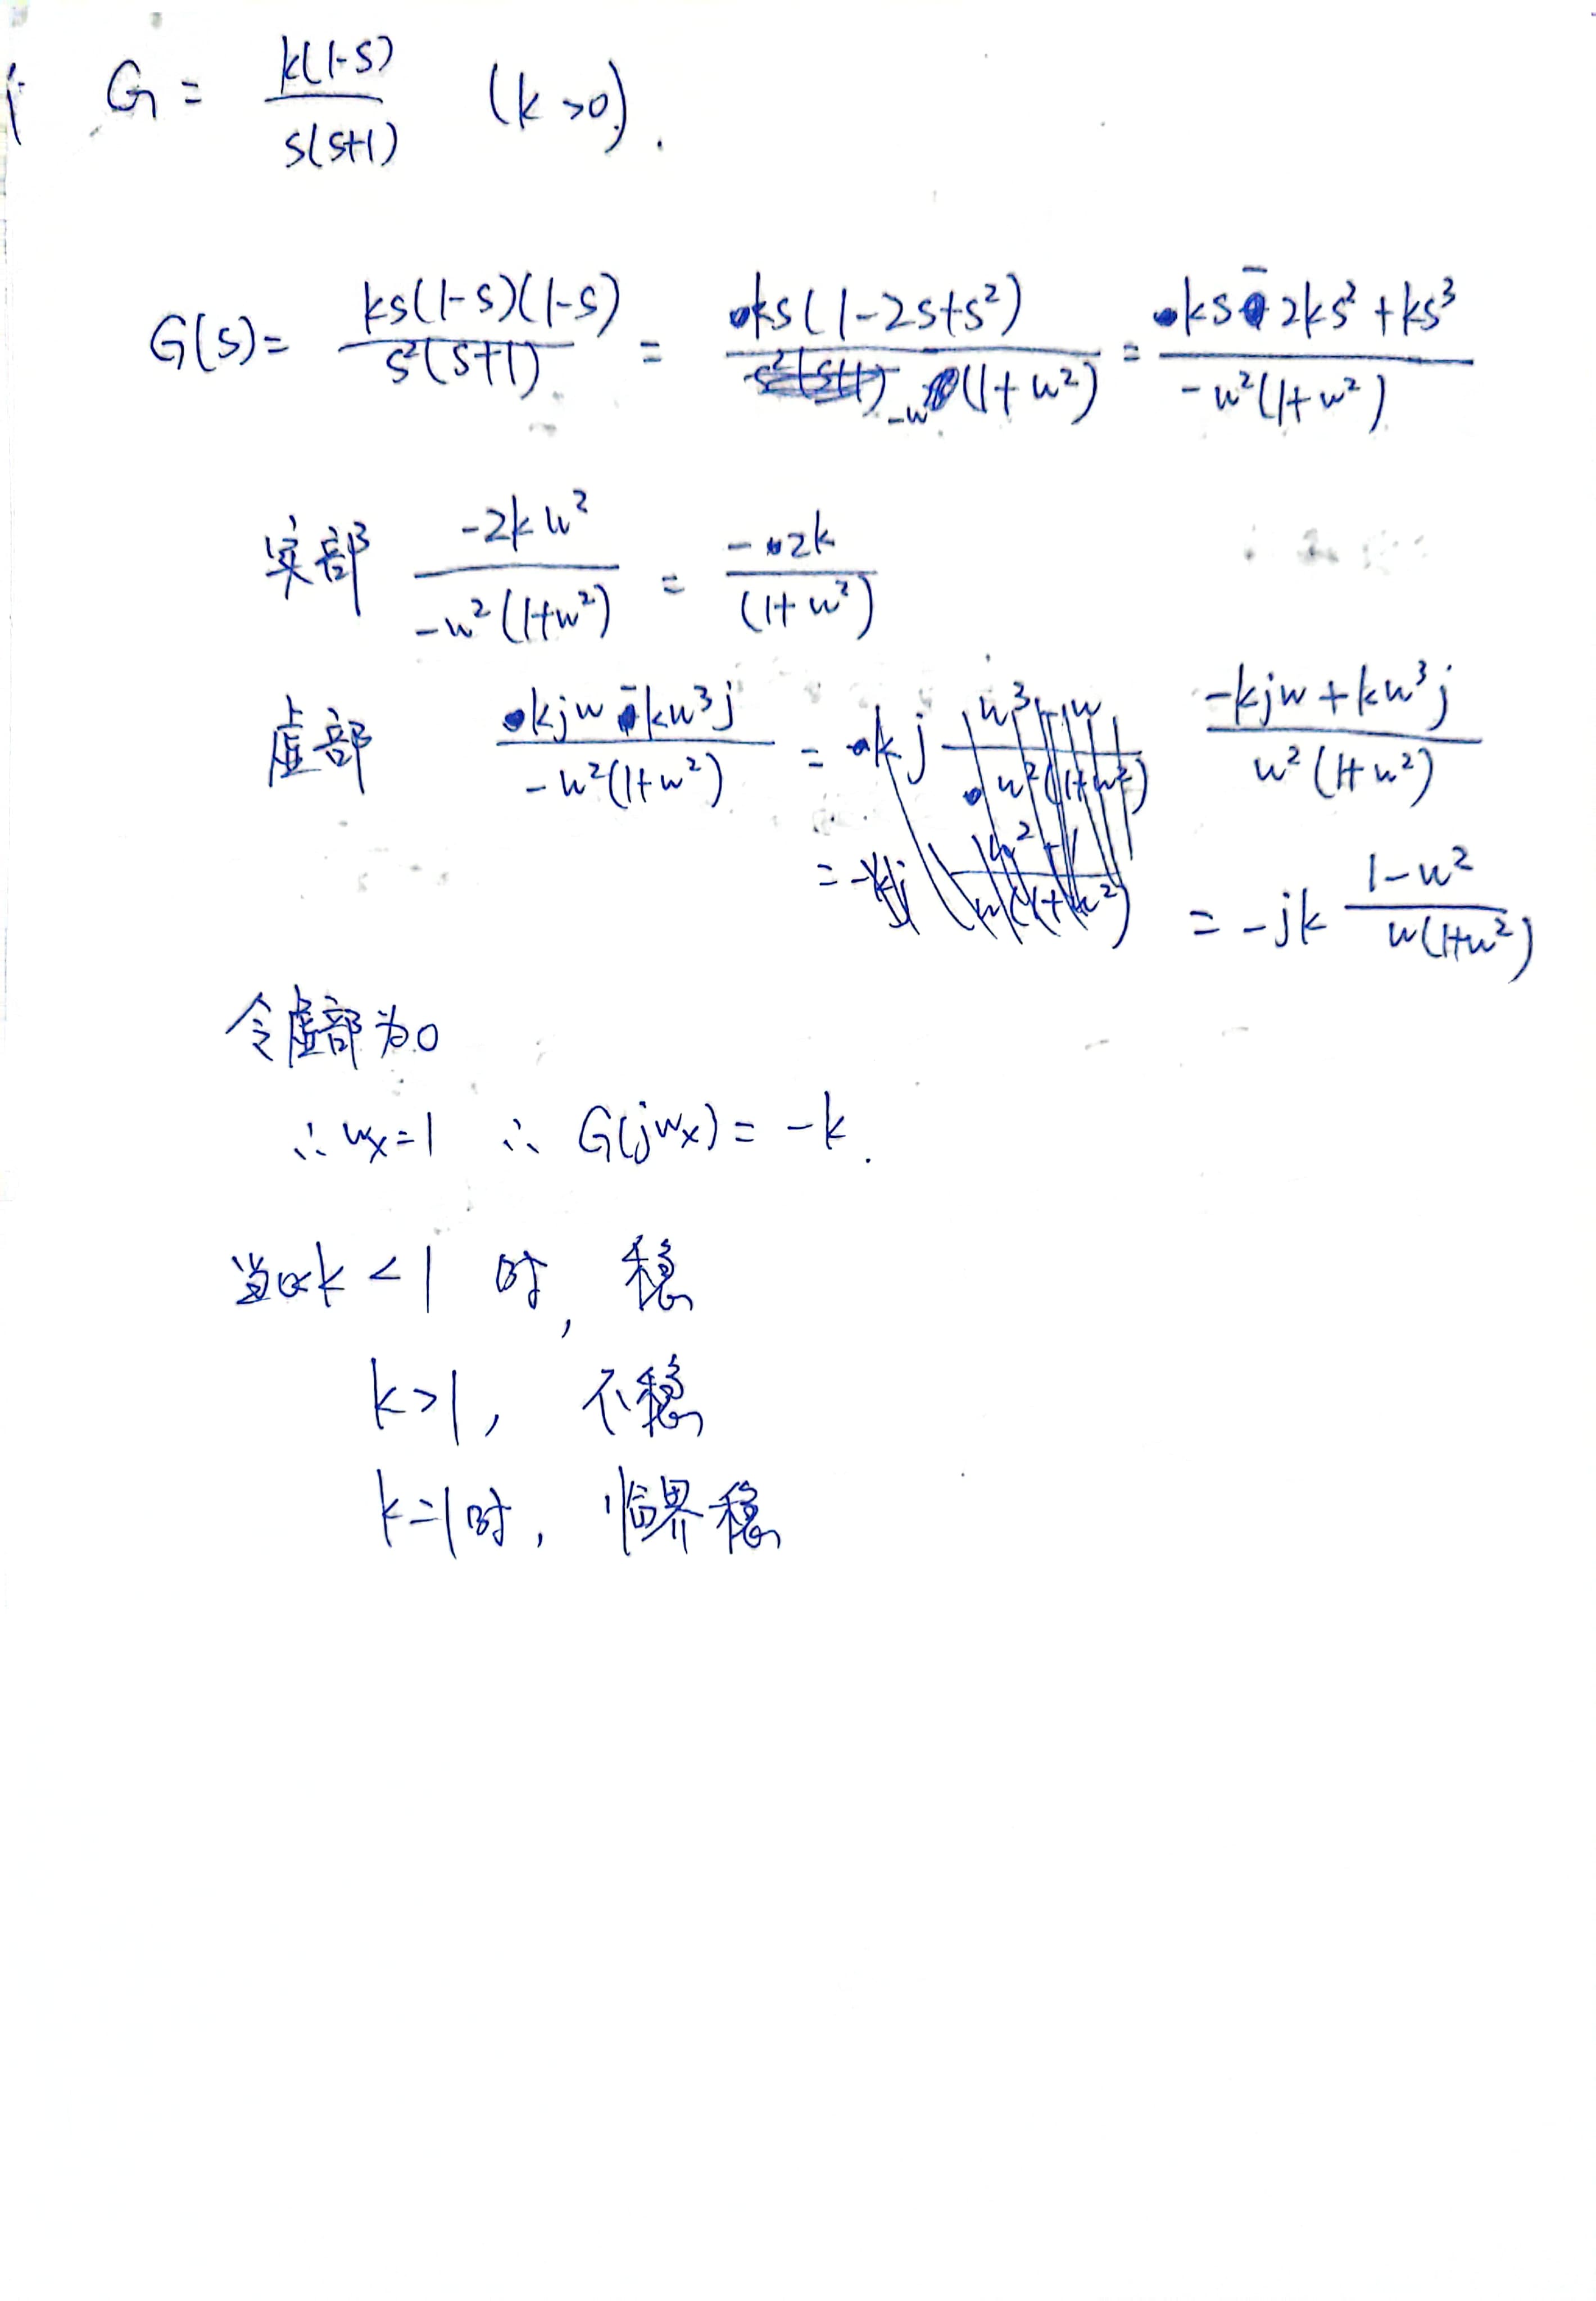 G = k(1-s) / s(s+1) (k>0).
G(s) = ks(1-s)(1-s) / s²(s+1) = ks(1-2s+s²) / -w²(1+w²) = ks - 2ks² + ks³ / -w²(1+w²)
实部 -2kw² / -w²(1+w²) = -2k / (1+w²)
虚部 kjw - kw³j / -w²(1+w²) = -kjw + kw³j / w²(1+w²)
= -jk 1-w² / w(1+w²)
令虚部为0
∴ wx=1 ∴ G(jwx) = -k.
当k<1时, 稳
k>1, 不稳
k=1时, 临界稳